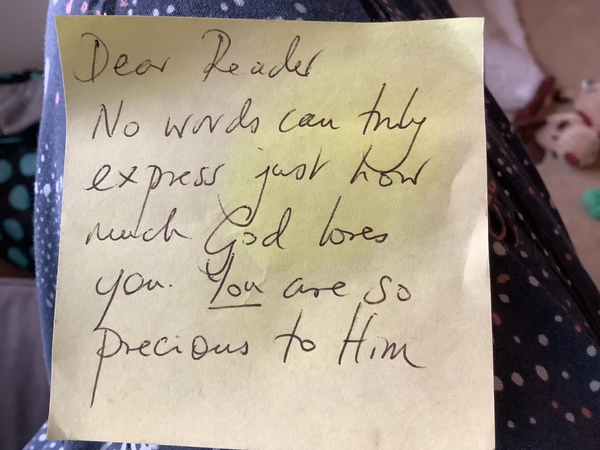 Dear Reader
No words can truly
express just how
much God loves
you. You are so
precious to Him